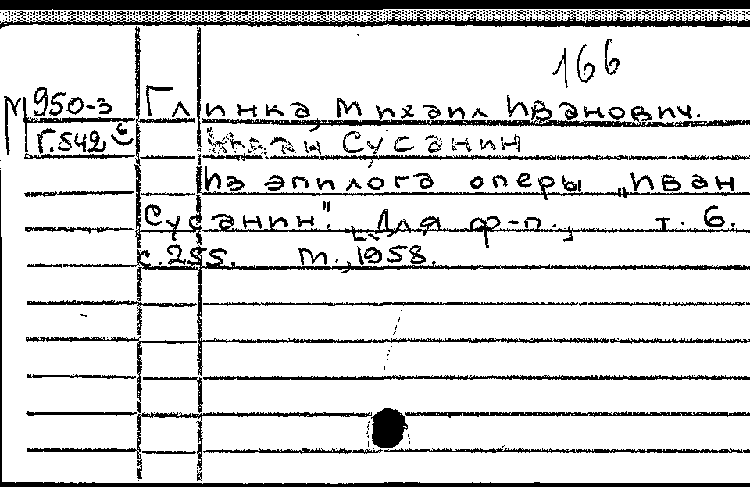 166
М 950-3 Глинка, Михаил Иванович.
Г.542 Сусанин
Из эпилога оперы „Иван
Сусанин". [Для ф-п.] т. 6.
с.255. М., 1958.